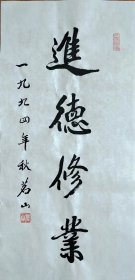 進德修業
一九九四年秋茗山